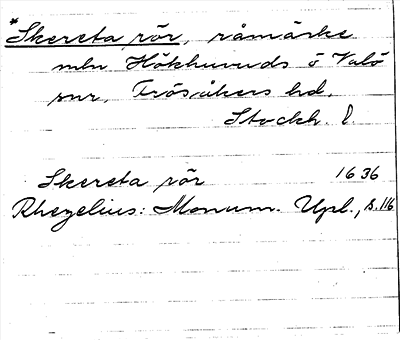 *Skereta rör, råmärke
mln Hökhuvuds o Valö
snr, Frösåkers hd,
Stockh. l.
Skereta rör 1636
Rhezelius: Monum. Upl., s. 116